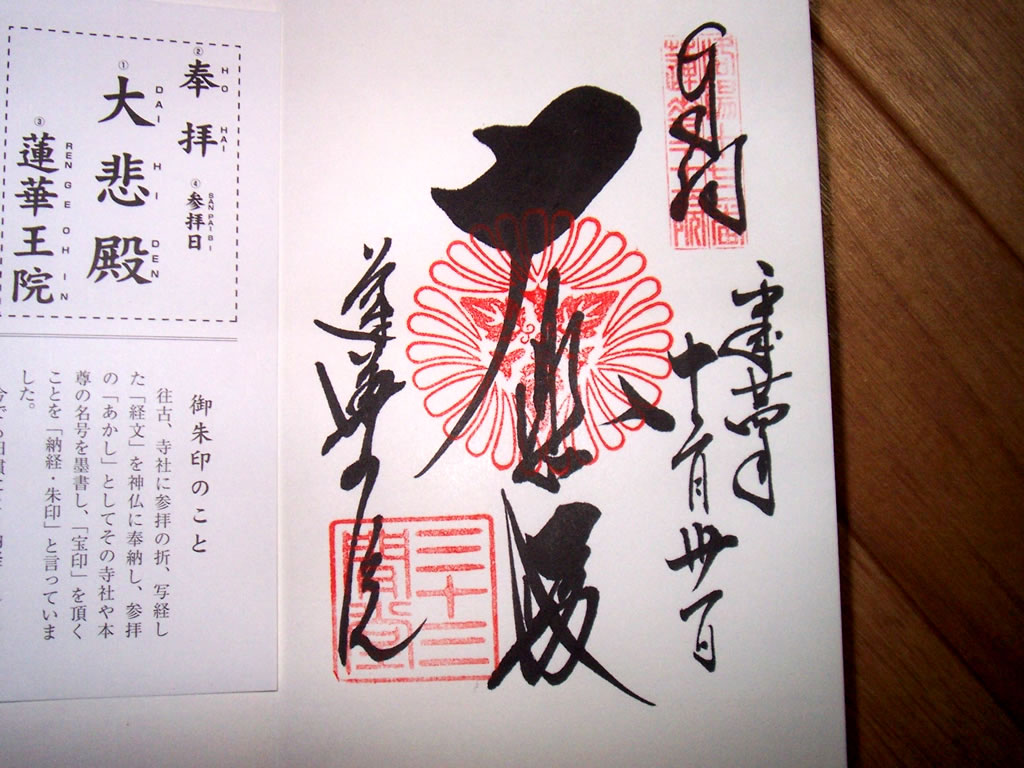 奉拝
十二月卅一日
大悲殿
蓮華王院
三十三
間堂
② 奉拝 HO HAI
④ 参拝日 SAN PAI BI
① 大悲殿 DAI HI DEN
③ 蓮華王院 REN GE OH IN
御朱印のこと
往古、寺社に参拝の折、写経し
た「経文」を神仏に奉納し、参拝
の「あかし」としてその寺社や本
尊の名号を墨書し、「宝印」を頂く
ことを「納経・朱印」と言っていま
した。